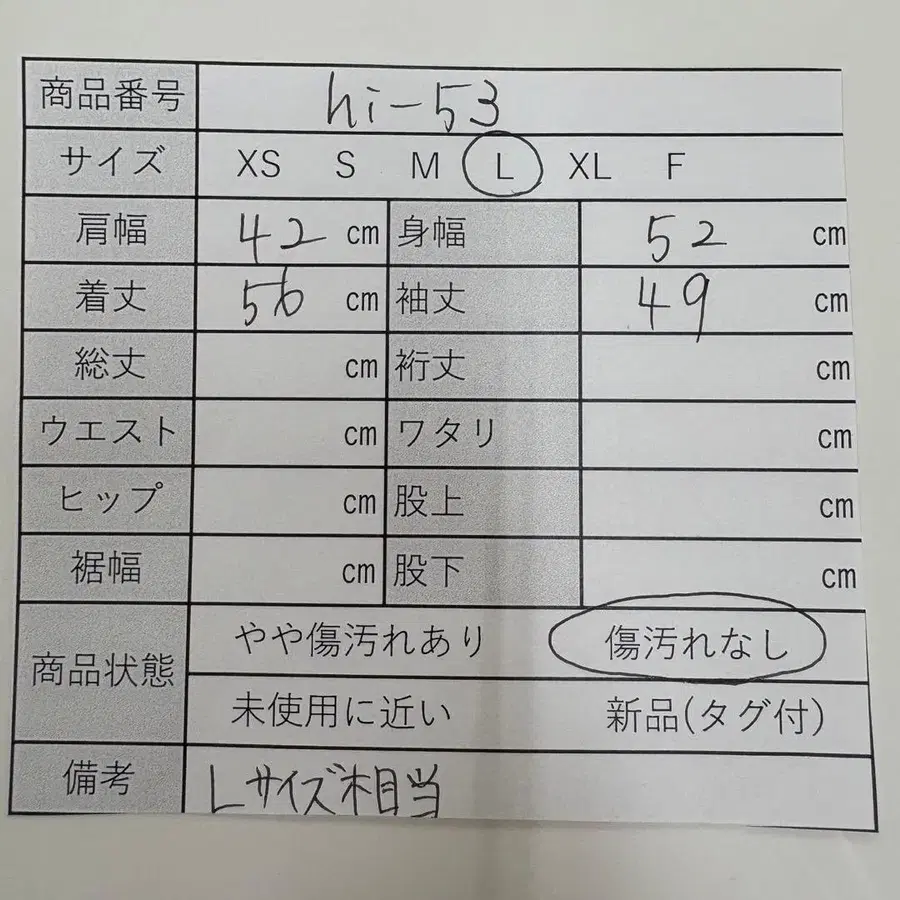 商品番号 hi-53
サイズ XS S M L XL F
肩幅 42 cm 身幅 52 cm
着丈 56 cm 袖丈 49 cm
総丈 cm 裄丈 cm
ウエスト cm ワタリ cm
ヒップ cm 股上 cm
裾幅 cm 股下 cm
商品状態 やや傷汚れあり 傷汚れなし
未使用に近い 新品(タグ付)
備考 Lサイズ相当